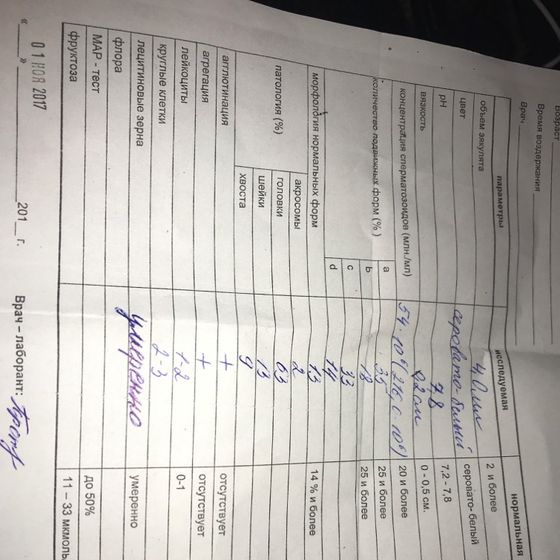 Возраст
Время воздержания
Врач
параметры исследуемая нормальная
объем эякулята 4,0 мл 2 и более
цвет серовато-белый серовато-белый
рН 7,8 7,2 - 7,8
вязкость 0,2 см 0 - 0,5 см.
концентрация сперматозоидов (млн./мл) 20 и более
количество подвижных форм (%) a 35 25 и более
b 18 25 и более
c 33
d 14
морфология нормальных форм 13 14 % и более
патология (%) акросомы 2
головки 63
шейки 13
хвоста 9
агглютинация + отсутствует
агрегация + отсутствует
лейкоциты 1-2 0-1
круглые клетки 2-3
лецитиновые зерна умеренно умеренно
флора
МАР - тест до 50%
фруктоза 11 – 33 мкмоль
« » 201 г. Врач – лаборант:
01 НОЯ 2017